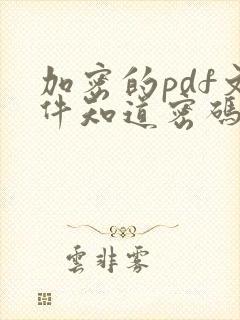 加密的pdf文
件知道密碼
雲非雾